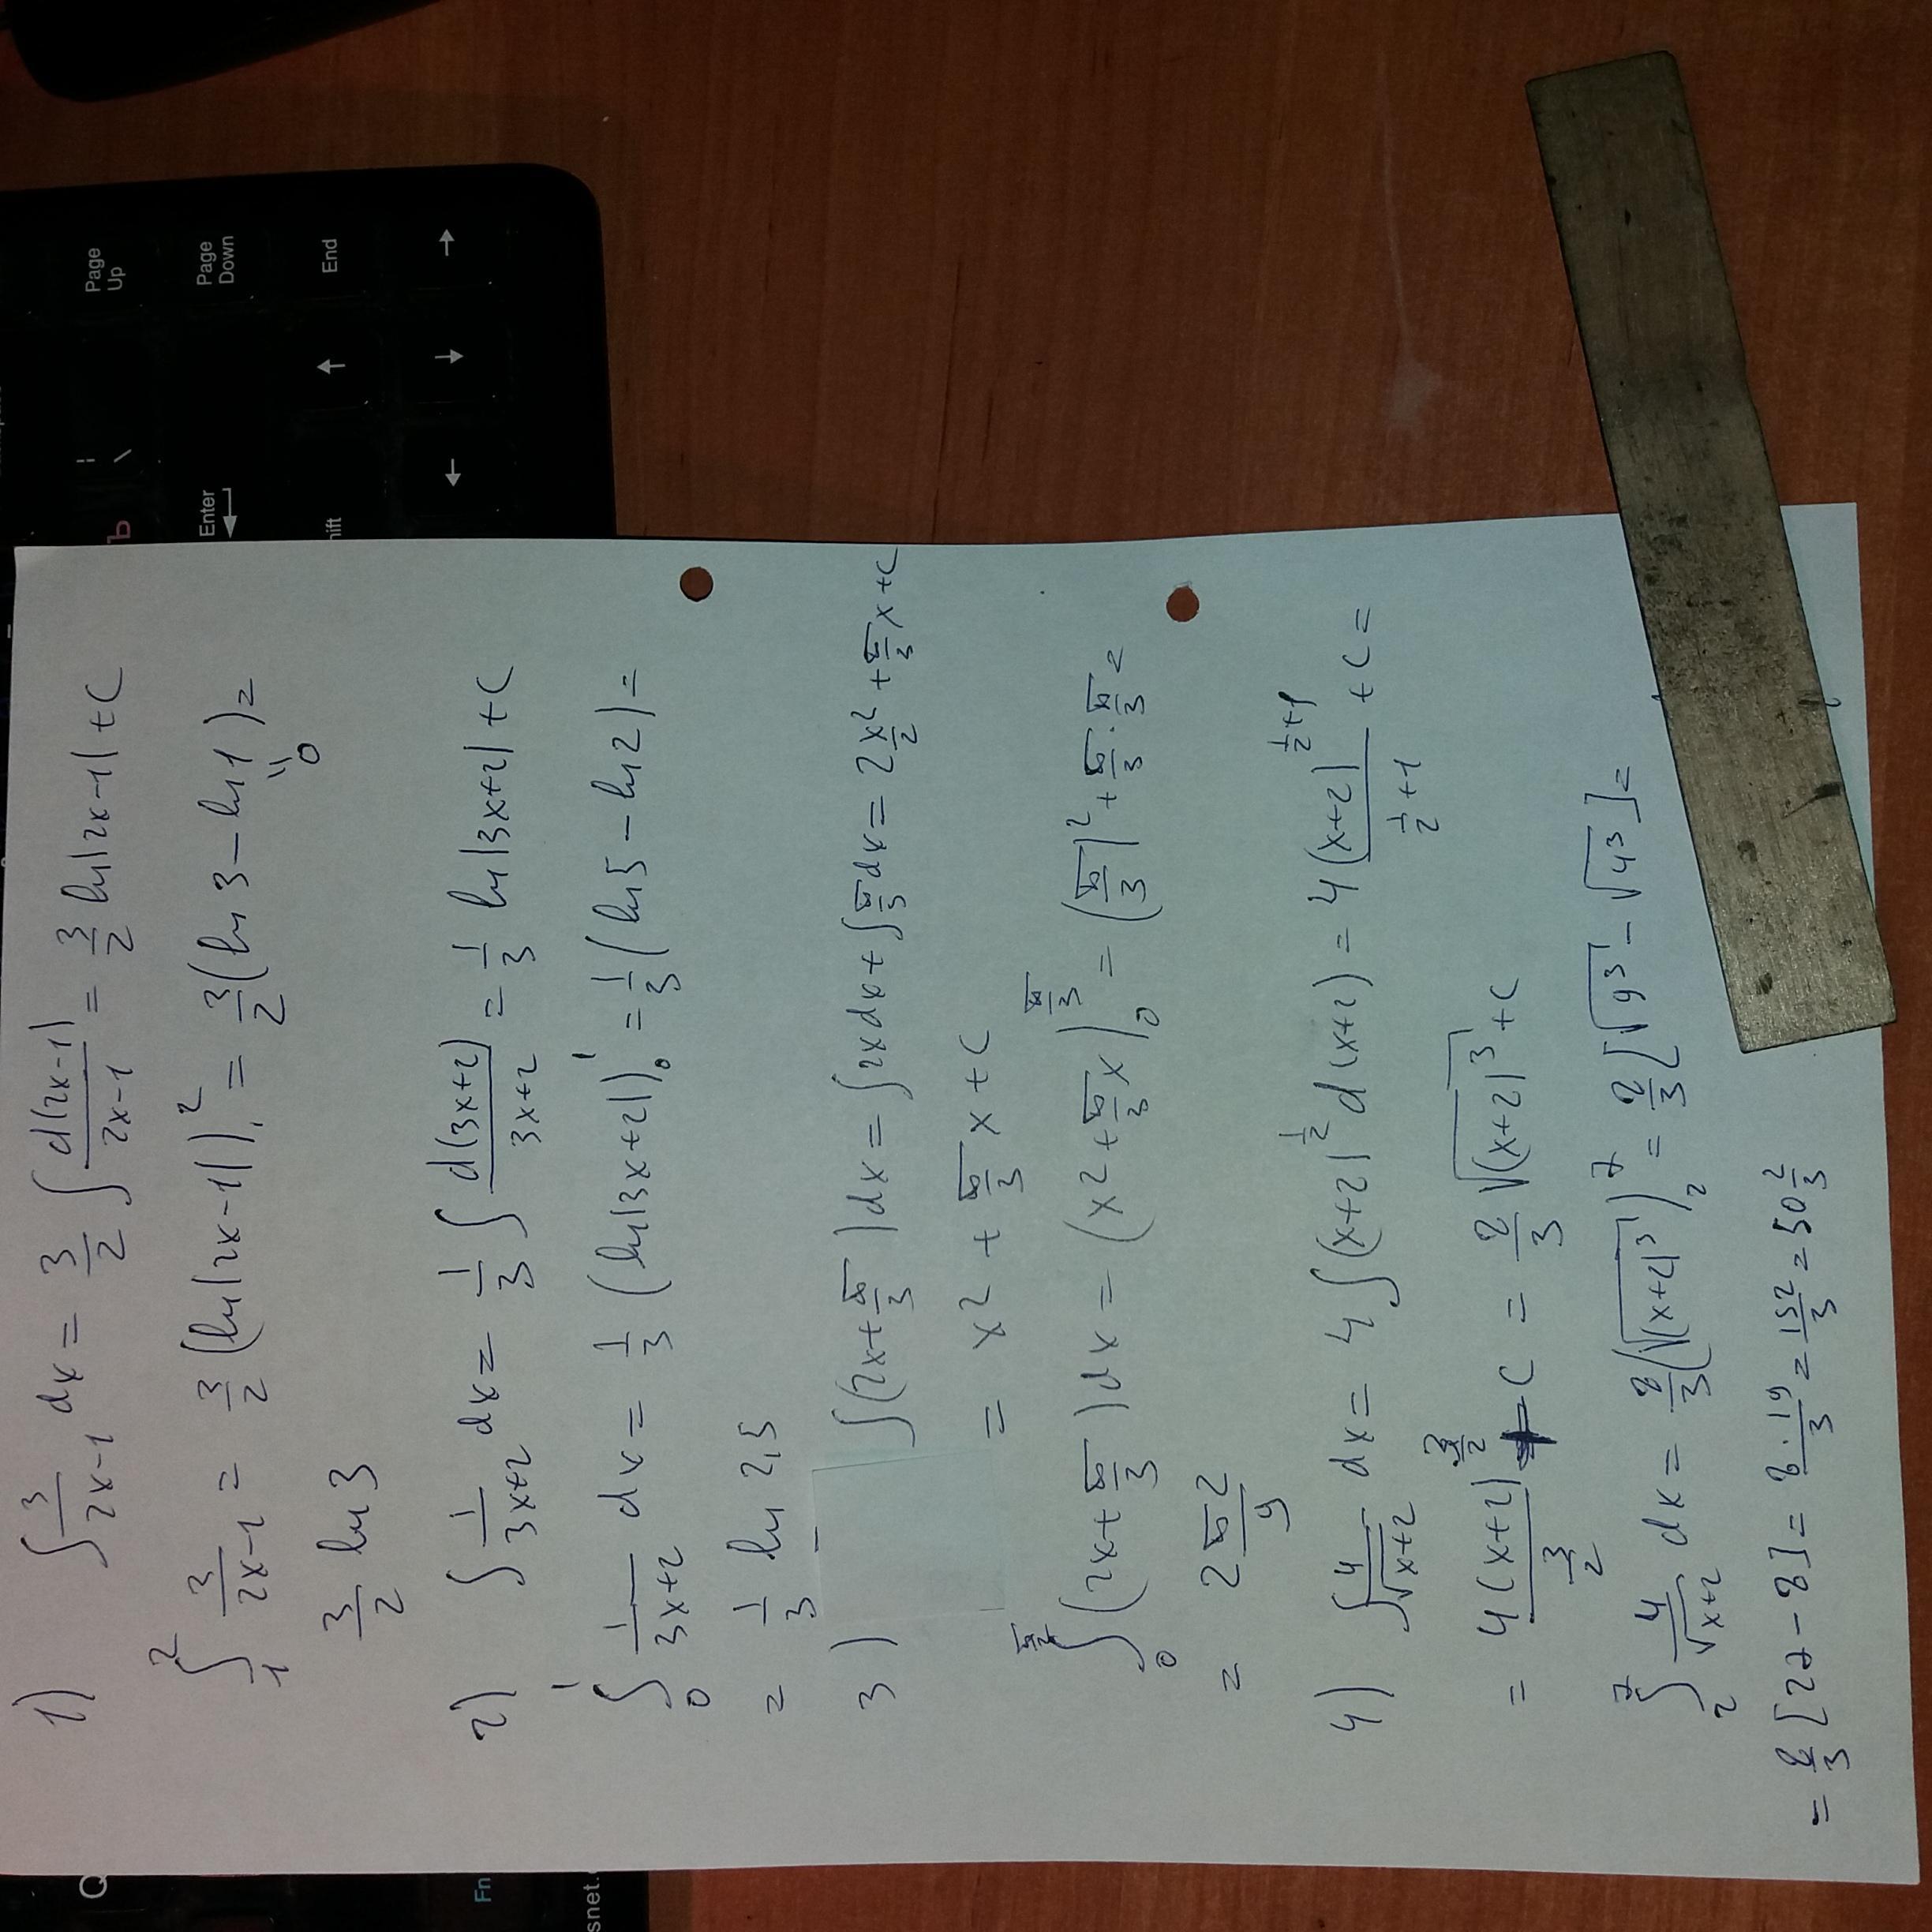 1) ∫ 3/(2x-1) dx = 3/2 ∫ d(2x-1)/(2x-1) = 3/2 ln|2x-1| + C
∫₁² 3/(2x-1) = 3/2 (ln|2x-1|)|₁² = 3/2 (ln 3 - ln 1) =
"
0
3/2 ln 3
2) ∫ 1/(3x+2) dx = 1/3 ∫ d(3x+2)/(3x+2) = 1/3 ln|3x+2| + C
∫₀¹ 1/(3x+2) dx = 1/3 (ln|3x+2|)|₀¹ = 1/3 (ln 5 - ln 2) =
= 1/3 ln 2,5
3) ∫(2x + π/3) dx = ∫2x dx + ∫π/3 dx = 2 x²/2 + π/3 x + C
= x² + π/3 x + C
∫₀ (2x + π/3) dx = (x² + π/3 x)|₀^(π/3) = (π/3)² + π/3 · π/3 =
= 2 π²/9
4) ∫ 4/√(x+2) dx = 4 ∫(x+2)^(1/2) d(x+2) = 4 (x+2)^(1/2+1)/(1/2+1) + C =
= 4 (x+2)^(3/2)/(3/2) + C = 8/3 √((x+2)³) + C
∫₂⁷ 4/√(x+2) dx = 8/3 (√((x+2)³))|₂⁷ = 8/3 [√(9³) - √(4³)] =
= 8/3 [27 - 8] = 8·19/3 = 152/3 = 50 2/3
Page Up
Page Down
End
Enter
Ъ
\
Q
Fn
snet.